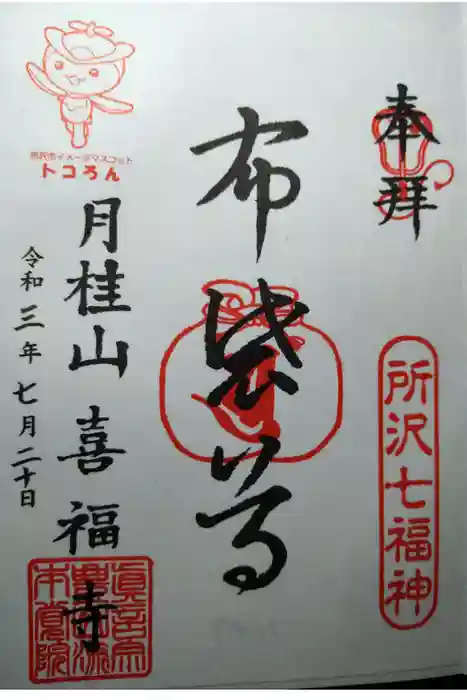 奉拝
所沢七福神
布袋尊
月桂山 喜福寺
令和三年七月二十日
所沢市イメージマスコット
トコろん
眞言宗
豊山派
本覚院